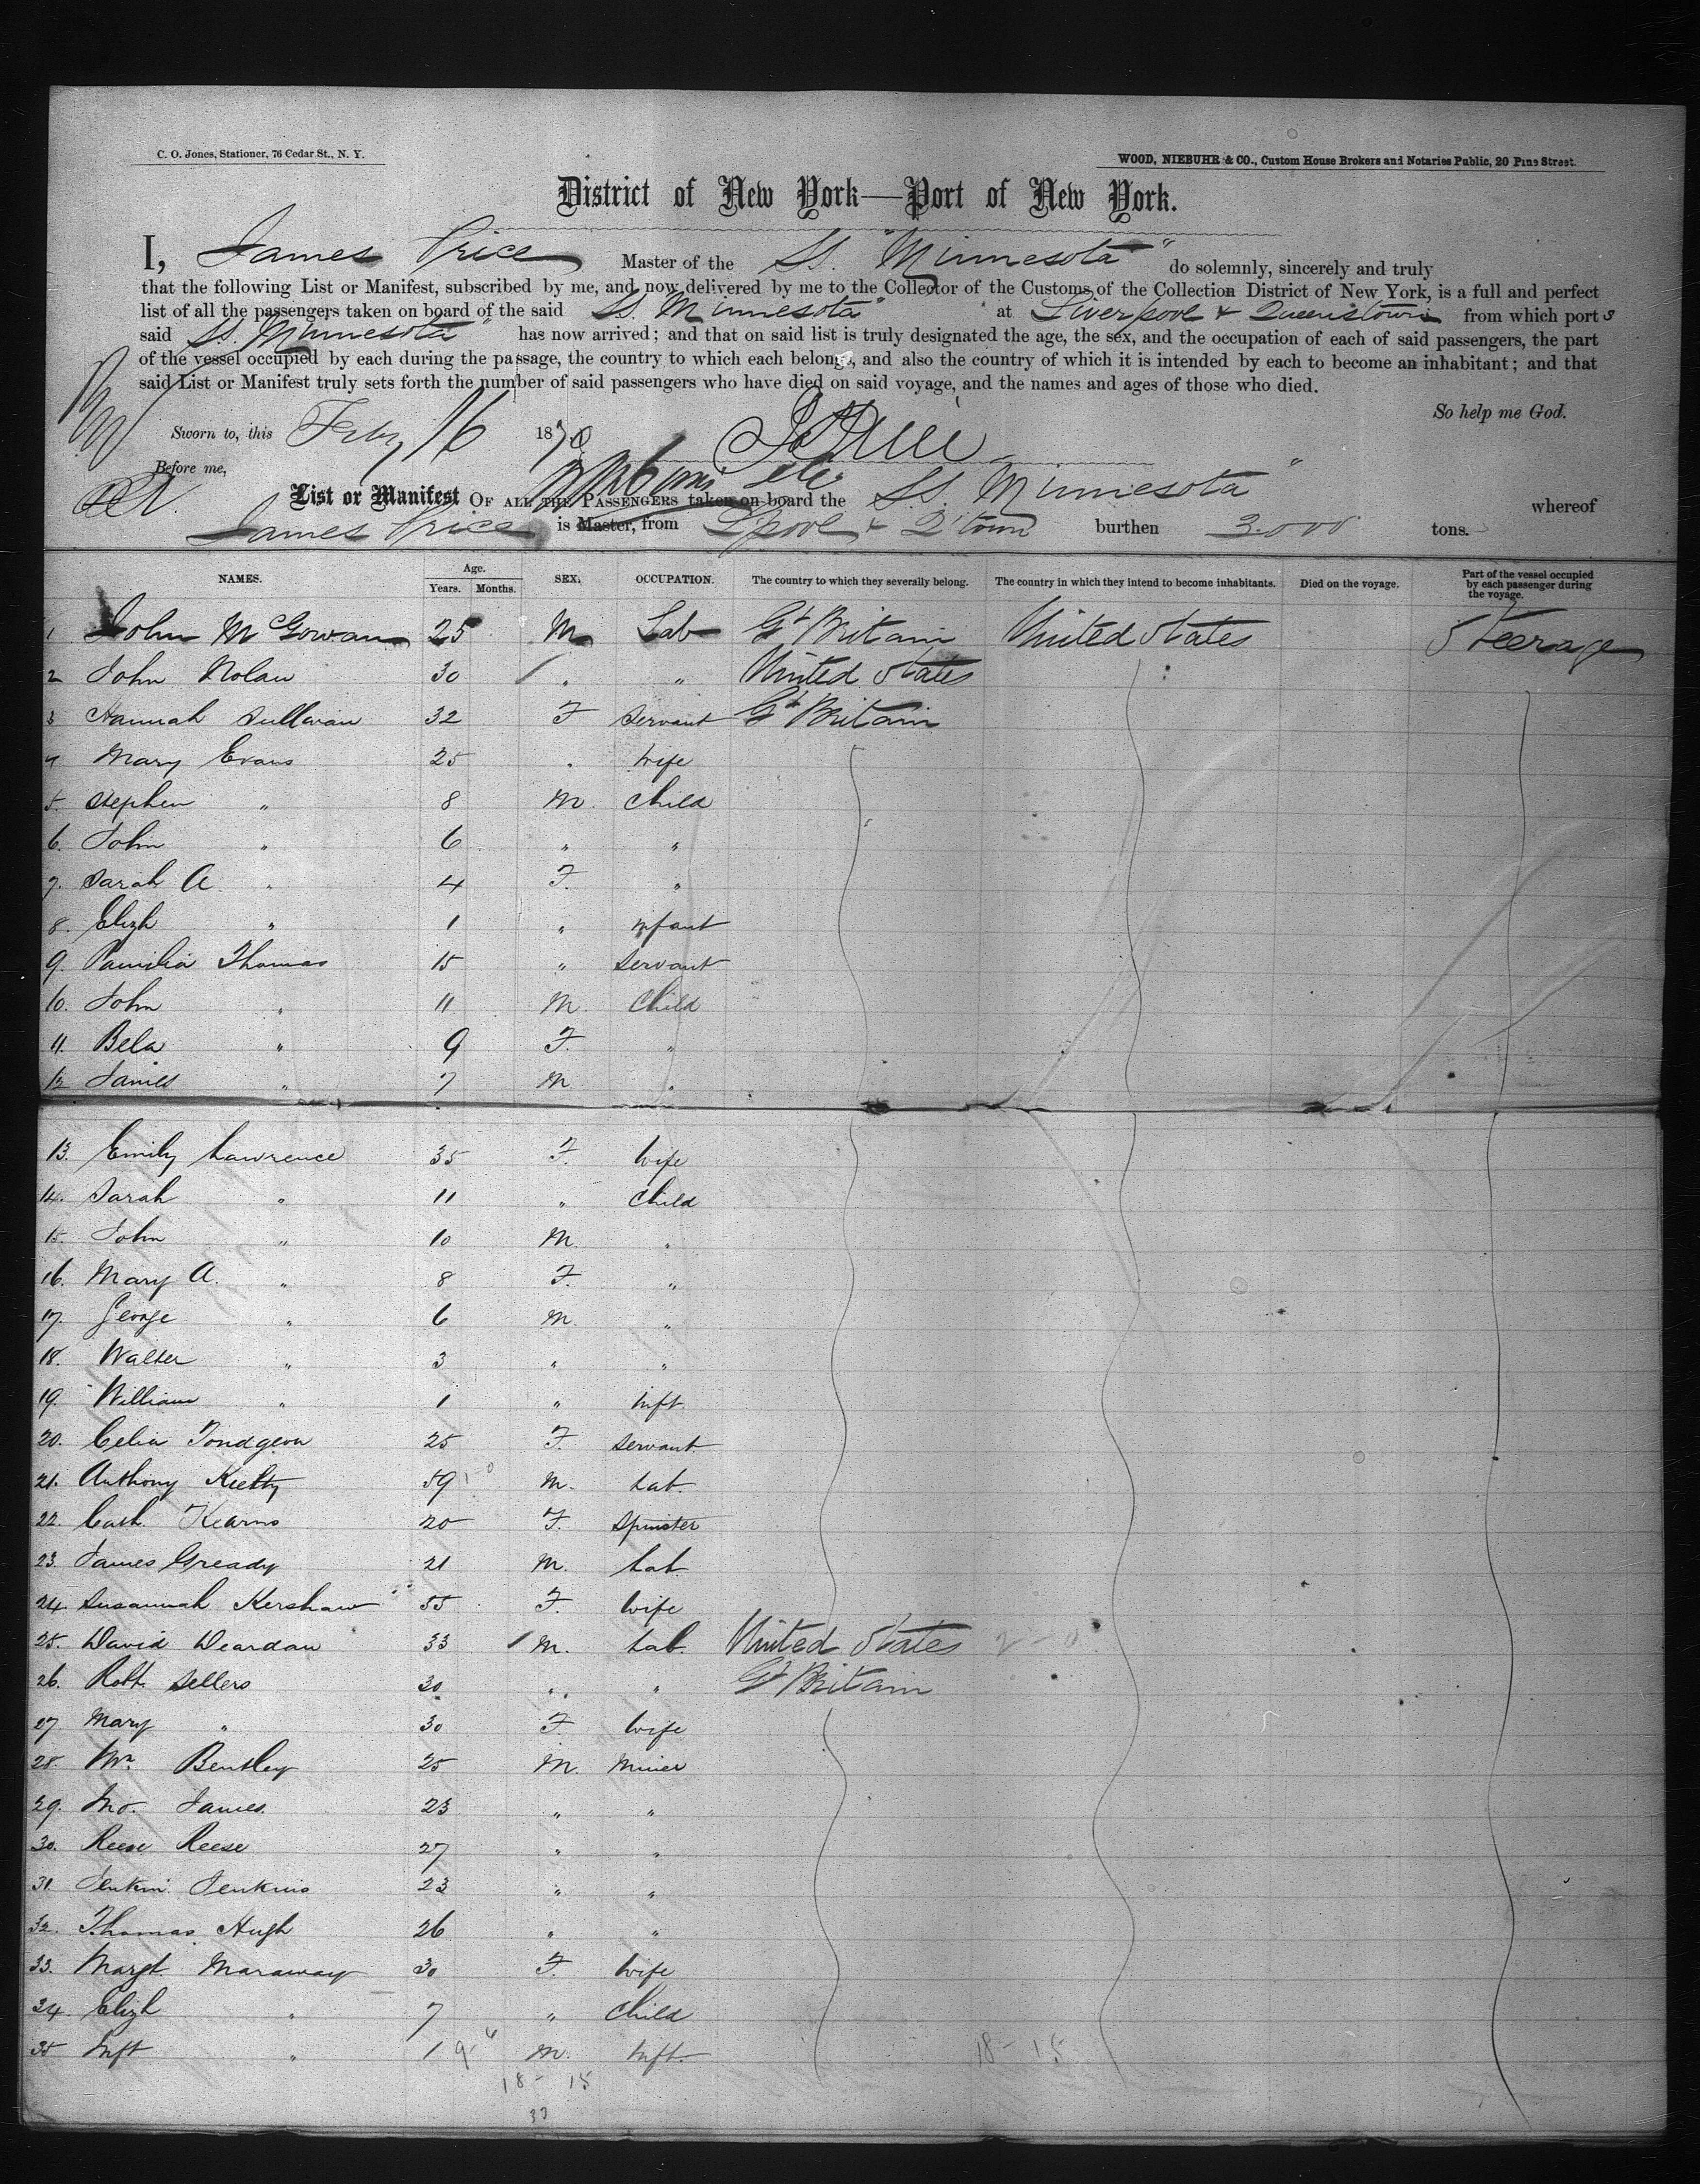 C. O. Jones, Stationer, 76 Cedar St., N. Y.
WOOD, NIEBUHR & CO., Custom House Brokers and Notaries Public, 20 Pine Street.
District of New York—Port of New York.
I, James Price Master of the SS. "Minnesota" do solemnly, sincerely and truly
that the following List or Manifest, subscribed by me, and now delivered by me to the Collector of the Customs of the Collection District of New York, is a full and perfect
list of all the passengers taken on board of the said SS. Minnesota" at Liverpool & Queenstown from which port s
said SS. Minnesota" has now arrived; and that on said list is truly designated the age, the sex, and the occupation of each of said passengers, the part
of the vessel occupied by each during the passage, the country to which each belongs, and also the country of which it is intended by each to become an inhabitant; and that
said List or Manifest truly sets forth the number of said passengers who have died on said voyage, and the names and ages of those who died.
So help me God.
Sworn to, this Feby 16 1870
Before me,
List or Manifest OF ALL THE PASSENGERS taken on board the SS. Minnesota" whereof
James Price is Master, from Lpool & Q'town burthen 3.000 tons.
NAMES. Age. Years. Months. SEX. OCCUPATION. The country to which they severally belong. The country in which they intend to become inhabitants. Died on the voyage. Part of the vessel occupied by each passenger during the voyage.
1 John McGowan 25 M Lab Gt Britain United States Steerage
2 John Nolan 30 " " United States
3 Hannah Sullivan 32 F Servant Gt Britain
4 Mary Evans 25 " Wife
5. Stephen " 8 M. Child
6. John " 6 " "
7. Sarah A. " 4 F. "
8. Elizh " 1 " infant
9. Pamilia Thomas 15 " Servant
10. John " 11 M. Child
11. Bela " 9 F. "
12 James " 7 M. "
13. Emily Lawrence 35 F. Wife
14. Sarah " 11 " Child
15. John " 10 M. "
16. Mary A. " 8 F. "
17. George " 6 M. "
18. Walter " 3 " "
19. William " 1 " Inft.
20. Celia 25 F. Servant
21. Anthony Kielty 59 M. Lab.
22. Cath. Kearns 20 F. Spinster
23. James Gready 21 M. Lab.
24. Susannah Kershaw 55 F. Wife
25. David Deardan 33 M. Lab. United States
26. Robt. Sellers 30 " " Gt Britain
27. Mary " 30 F. Wife
28. Wm. Bentley 25 M. Miner
29. Jno. James 23 " "
30. Reese Reese 27 " "
31. Jenkin Jenkins 23 " "
32. Thomas Hugh 26 " "
33. Margt. Maraway 30 F. Wife
34. Elizh " 7 " Child
35 Inft " 1 M. Inft.
18 - 15
18 - 15